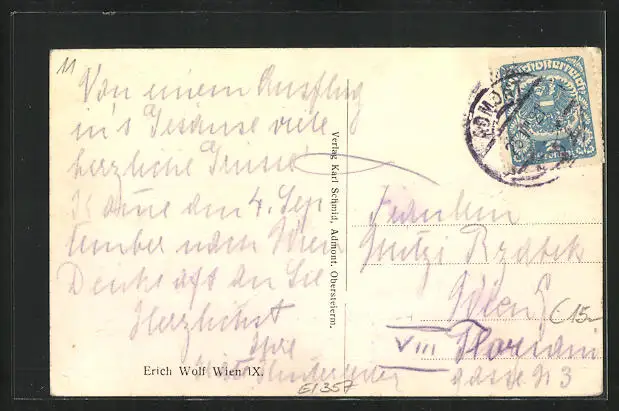 11
Von einem Ausflug
in's Gesäuse viele
herzliche Grüsse
Komme den 4. Sep
tember nach Wien
Denke oft an Sie
Herzlichst
Ihre
Erich Wolf Wien IX.
E1357
Verlag Karl Schmid, Admont, Obersteierm.
ADMONT
Deutschösterreich
Fräulein
Mitzi
Wien
€ 15-
VIII Floriani
gasse № 3